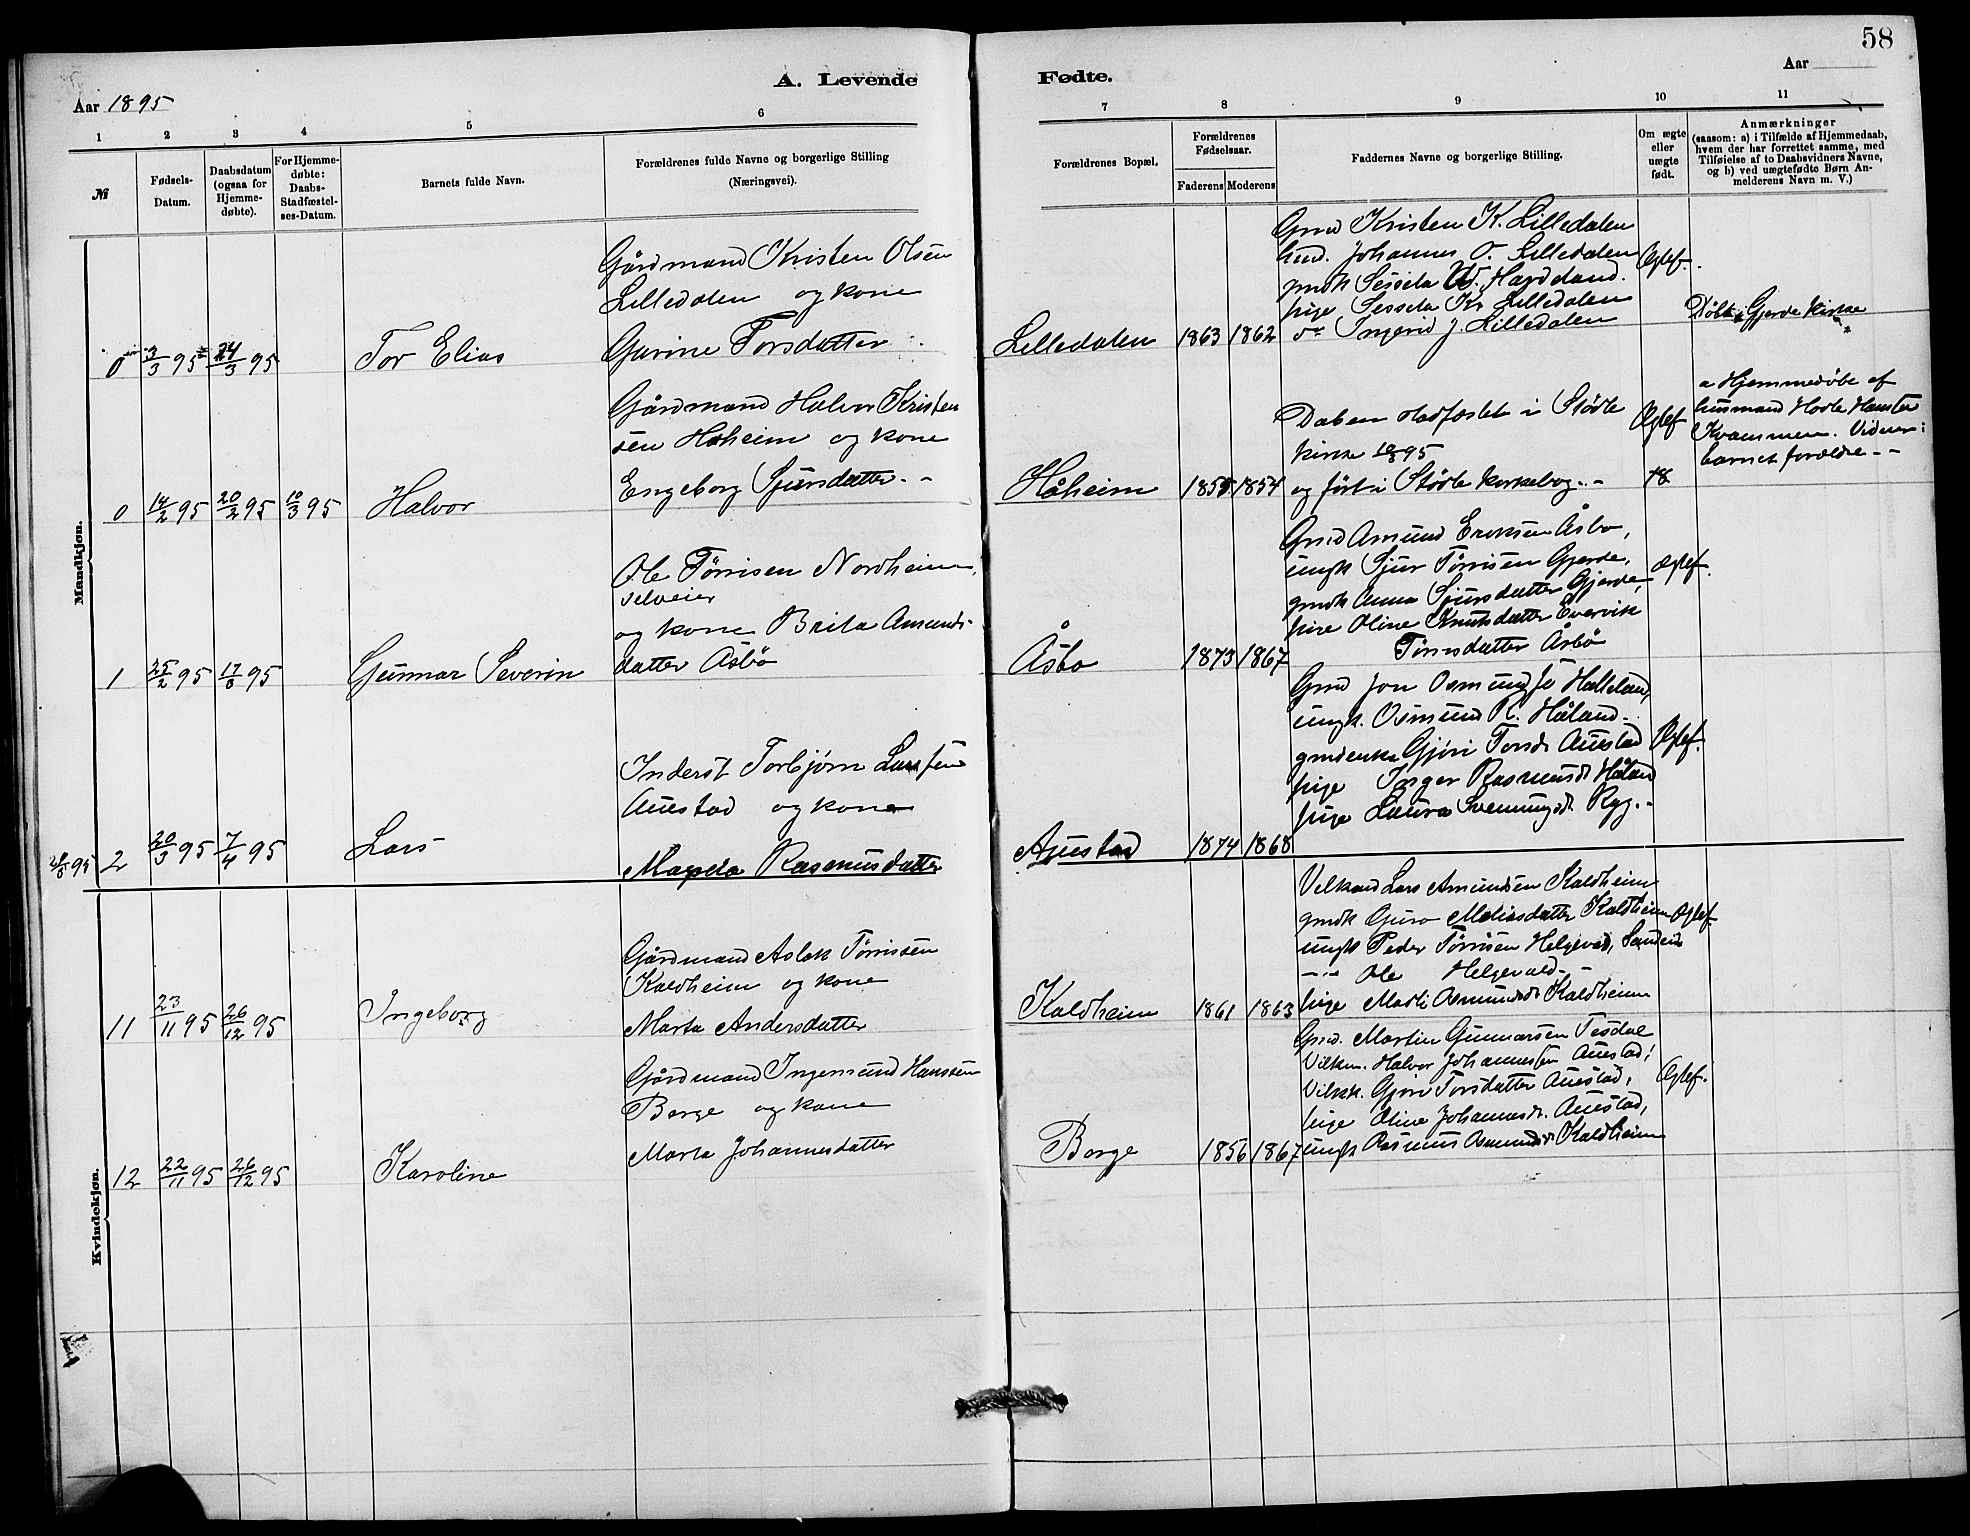 58
A. Levende
Fødte.
Aar 1895
Aar
1 2 3 4 5 6 7 8 9 10 11
№
Fødsels-Datum.
Daabsdatum (ogsaa for Hjemme-døbte).
For Hjemme-døbte: Daabs-Stadfæstel-ses-Datum.
Barnets fulde Navn.
Forældrenes fulde Navne og borgerlige Stilling
(Næringsvei).
Forældrenes Bopæl.
Forældrenes Fødselsaar.
Faderens Moderens
Faddernes Navne og borgerlige Stilling.
Om ægte eller uægte født.
Anmærkninger
(saasom: a) i Tilfælde af Hjemmedaab,
hvem der har forrettet samme, med
Tilføielse af to Daabsvidners Navne,
og b) ved uægtefødte Børn An-
melderens Navn m. V.)
Mandkjøn.
Gårdmand Kristen Olsen
Lilledalen og kone
Gurine Torsdatter
0 3/3 95 24/3 95 Tor Elias
Lilledalen 1863 1862
Gmd Kristen K. Lilledalen
Johannes O. Lilledalen
gmdk Sessela Havdland.
pige Sessela Kr Lilledalen
Ingerid J. Lilledalen
Ægtef.
Døbt i Gjerde kirke
Gårdmand Halvor Kristen
sen Håheim og kone
Engeborg Sjursdatter. -
0 14/2 95 20/2 95 10/3 95 Halvor
Håheim 1855 1854
Daben stadfæstet i Stødle
kirke 10/3 95
og ført i Stødle kirkebog. -
Ægtef
a Hjemmedøbt af
husmand
Kvammen. Vidner:
barnets forældre - -
Ole Tørrisen Nordheim,
selveier
og kone Brita Amunds-
datter Åsbø
1 25/2 95 17/3 95 Gunnar Severin
Åsbø 1873 1867
Gmd Amund Eriksen Åsbo,
ungk Sjur Tørrisen Gjerde,
gmdk Anna Sjursdatter Gjerde,
pige Oline Knutsdatter
Tørresdatter Åsbö
Ægtef.
Inderst Torbjørn Larssen
Auestad og kone
Magda Rasmusdatter
2 20/3 95 7/4 95 Lars
Auestad 1874 1868
Gmd Jon Osmundsen
ungk. Osmund R. Håland
gmdenke Gjøri Torsd. Auestad
pige Inger Rasmusd. Håland
pige Laura Svenningsd. Ryg. -
Ægtef.
Kvindekjøn.
Gårdmand Aslak Tørrissen
Kaldheim og kone
Marta Andersdatter
11 23/11 95 26/12 95 Ingeborg
Kaldheim 1861 1863
Lars Amundsen Kaldheim
gmdk Guro Kaldheim
ungk Peder Tørrisen
Ole Helgevold -
pige Osmundsd. Kaldheim
Ægtef.
Gårdmand Ingemund Hanssen
Borge og kone
Marta Johannesdatter
12 22/11 95 26/12 95 Karoline
Borge 1856 1867
Gmd. Martin Gunnarsen Tesdal
Halvor Johannessen Auestad,
Gjøri Torsdatter Auestad,
pige Oline Johannesd. Auestad,
ungk Rasmus Kaldheim
Ægtef.